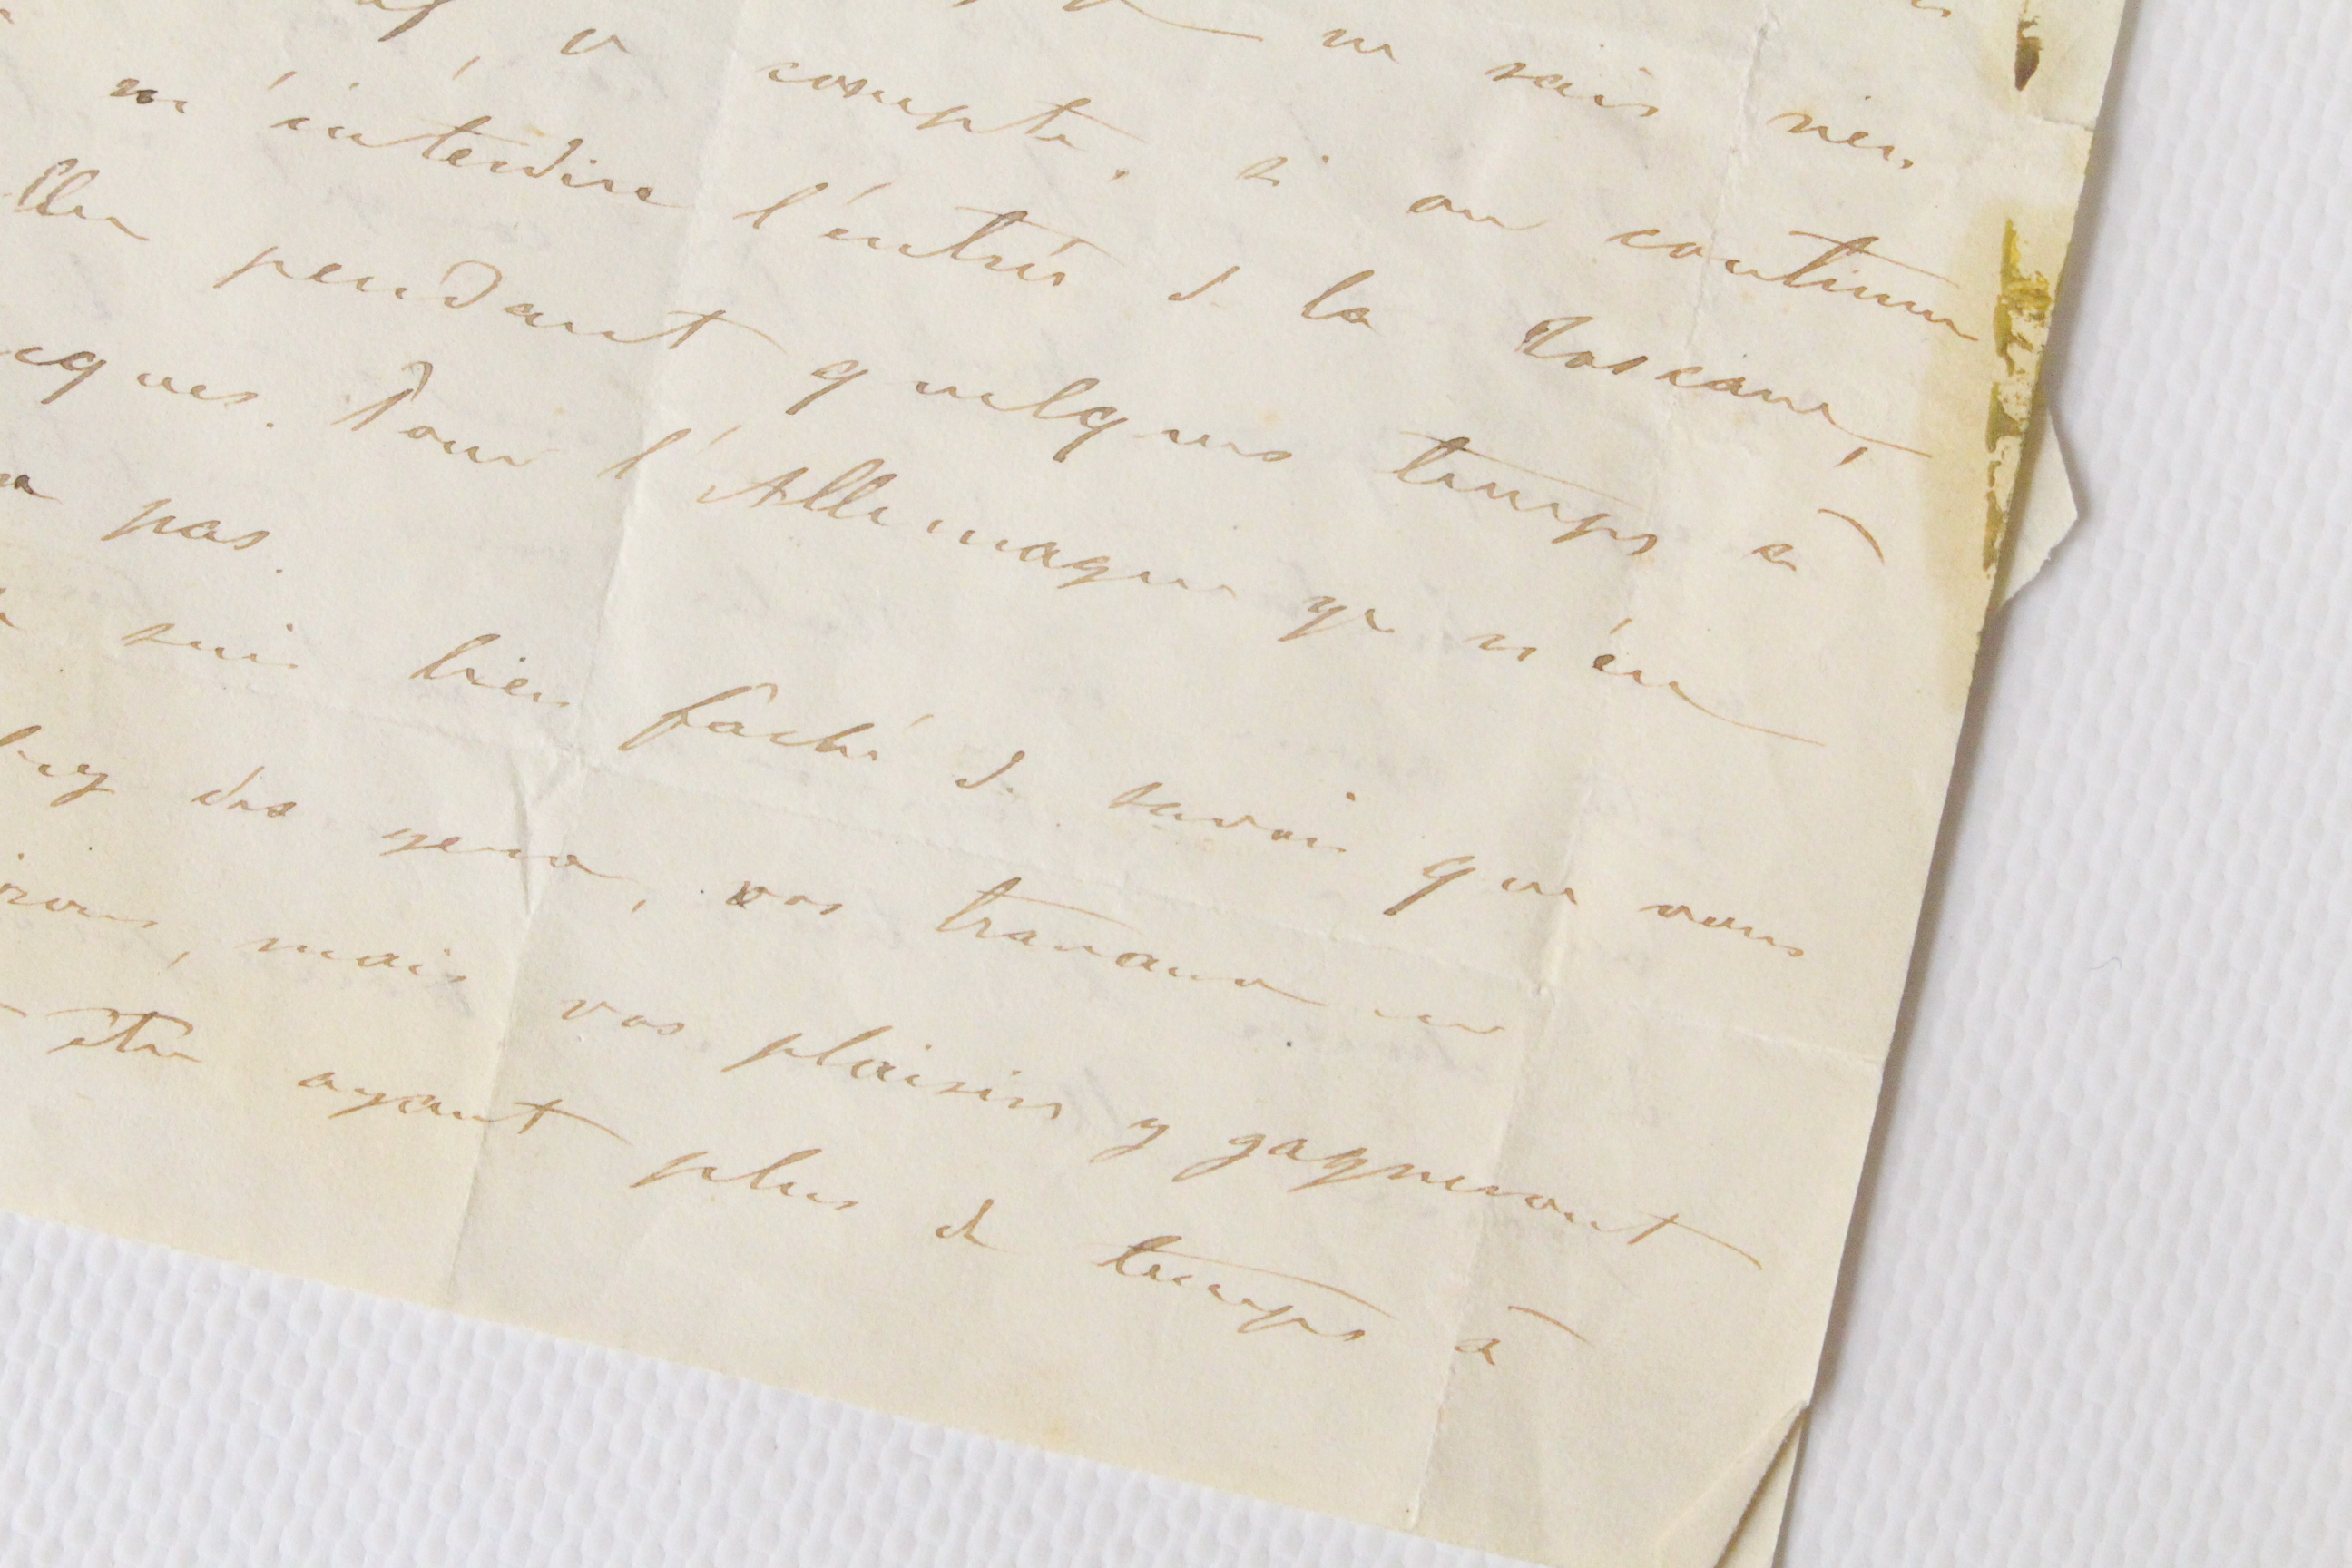 ne sais rien
compte, si on continue
m'interdire l'entrée de la Toscane,
pendant quelques temps à
ques. Pour l'Allemagne je n'en
pas.
suis bien fâché de savoir que vous
des yeux, vos travaux en
mais vos plaisirs y gagneront
être ayant plus de temps à